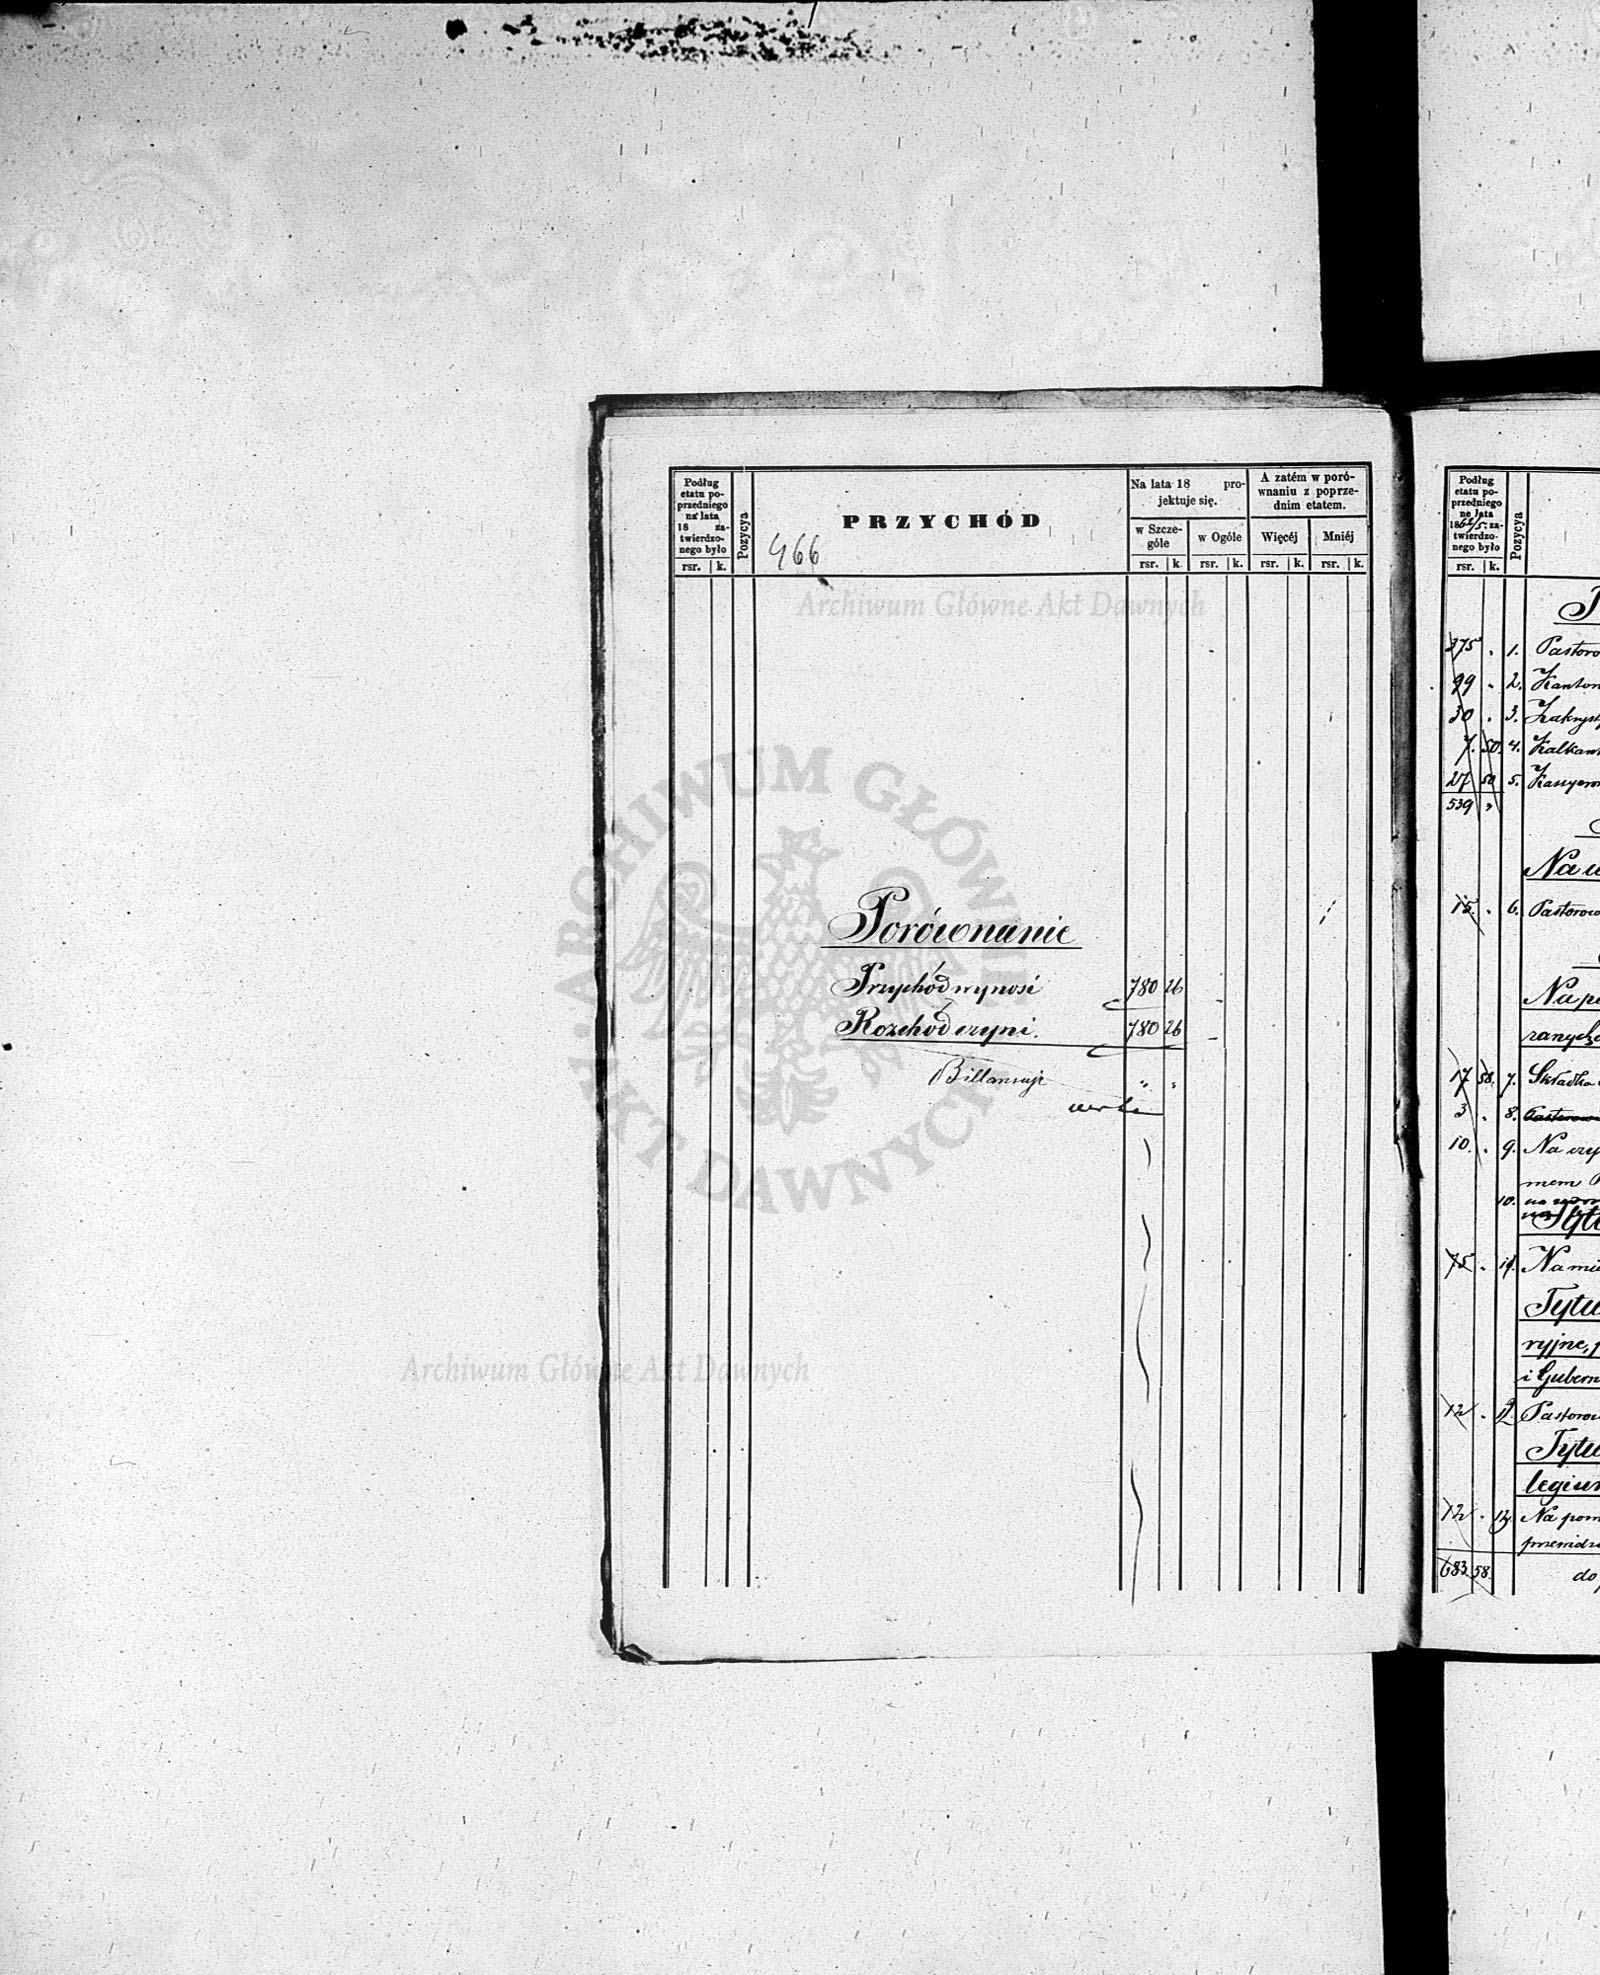 Podług
etatu po-
przedniego
na lata
18 za-
twierdzo-
nego było
rsr. k.
Pozycya
PRZYCHÓD
466
Na lata 18 pro-
jektuje się.
w Szcze-
góle
w Ogóle
rsr. k. rsr. k.
A zatém w poró-
wnaniu z poprze-
dnim etatem.
Więcéj Mniéj
rsr. k. rsr. k.
Archiwum Główne Akt Dawnych
Porównanie
Przychód wynosi 780 26
Rozchód czyni. 780 26
Billansuje " "
ARCHIWUM GŁÓWNE AKT DAWNYCH
Archiwum Główne Akt Dawnych
Podług
etatu po-
przedniego
na lata
18 /5 za-
twierdzo-
nego było
rsr. k.
Pozycya
375 " 1. Pastoro
99 " 2. Kanton
30 " 3. Zakryst
7. 50. 4. Kalkant
27 50 5. Kassyero
539 "
Na u
15. " 6. Pastorow
Na p
ranych
17 58. 7. Składka
3 " 8. Pastorow
10. " 9. Na czy
mem
10.
Tytu
75 " 11. Na mie
Tytu
ryjne, p
i Gubern
12 " 12. Pastorow
Tytu
legium
12 " 13. Na pom
przewidz
683 58. do